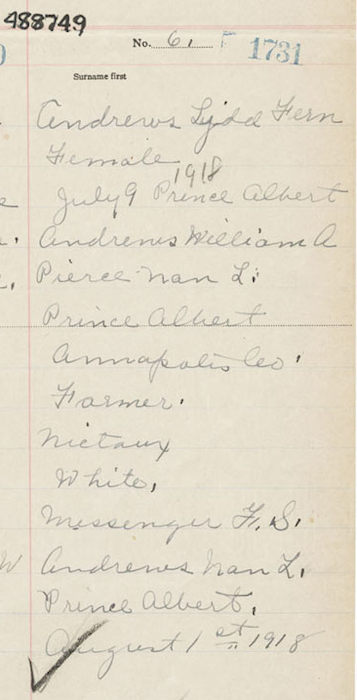 488749
No. 61 F 1731
Surname first
Andrews Lydd Fern
Female
1918
July 9 Prince Albert
Andrews William A
Pierce Nan L.
Prince Albert
Annapolis Co.
Farmer.
Nictaux
White,
Messenger F. S.
Andrews Nan L.
Prince Albert.
August 1st 1918